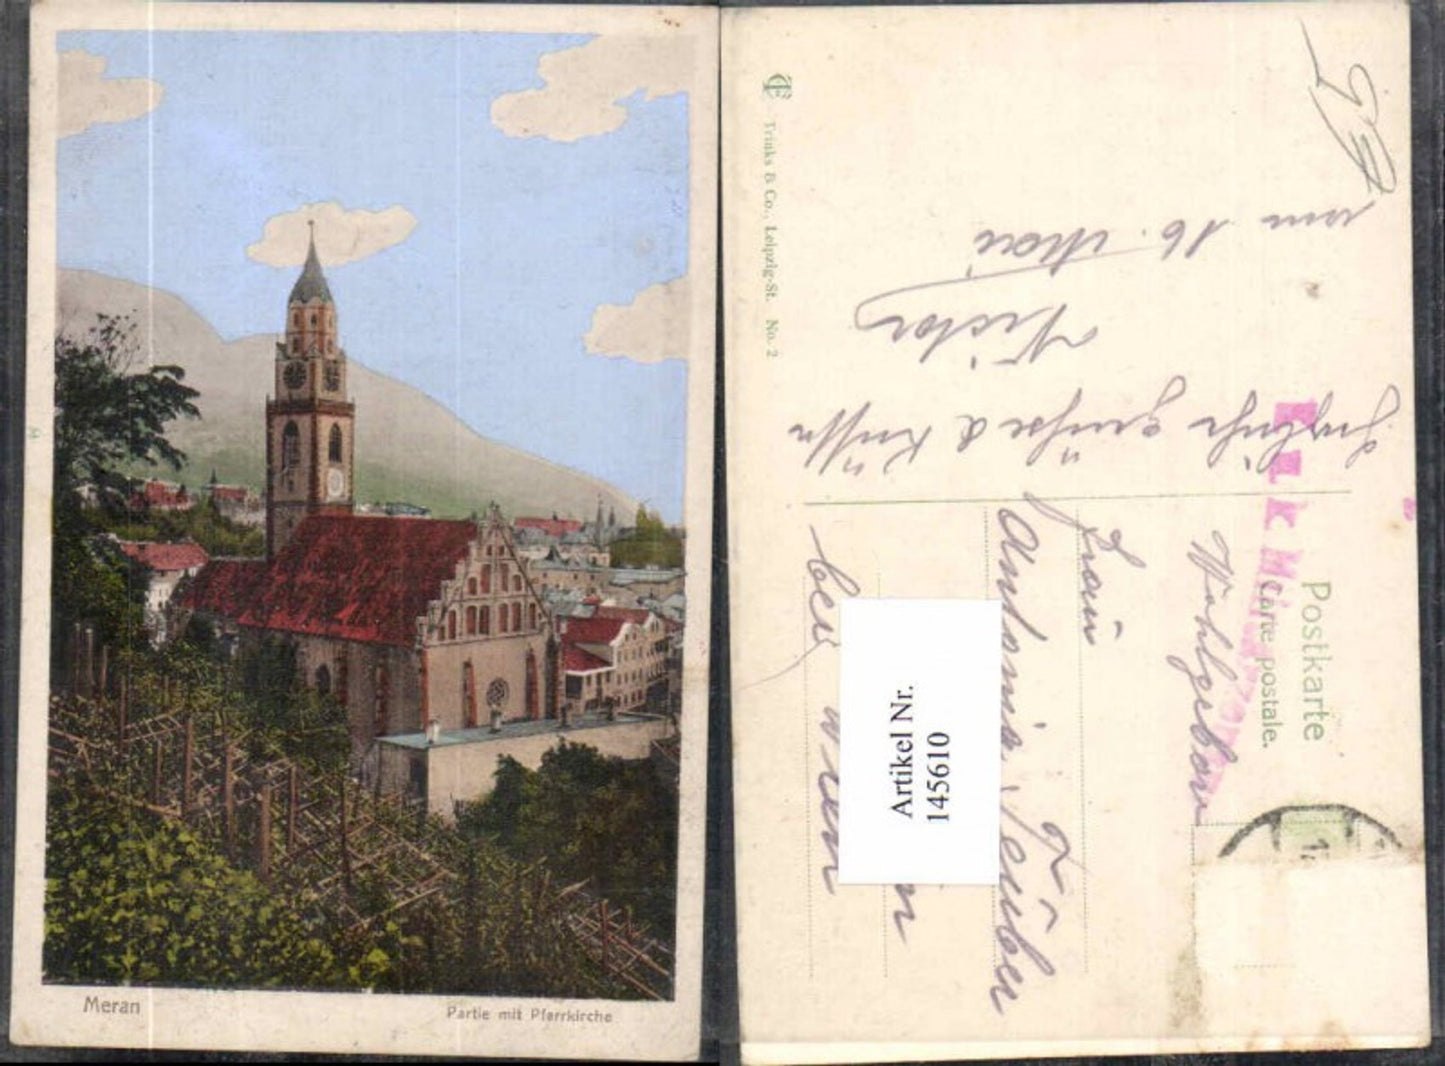 Meran
Partie mit Pfarrkirche
Trinks & Co., Leipzig-St. No. 2
16. Mai
Victor
Herzliche Grüße & Küsse
Postkarte
Carte postale.
Wohlgeboren
Frau
Antonia Teuber
bei Wien
Artikel Nr.
145610